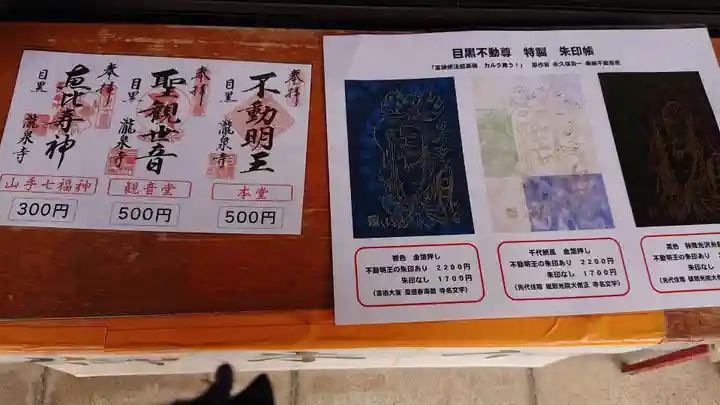 奉拝
恵比寿神
目黒
瀧泉寺
山手七福神
300円
奉拝
聖観世音
目黒
瀧泉寺
観音堂
500円
奉拝
不動明王
目黒
瀧泉寺
本堂
500円
目黒不動尊 特製 朱印帳
カルラ舞う!」
紺色 金箔押し
不動明王の朱印あり 2200円
朱印なし 1700円
千代紙風 金箔押し
不動明王の朱印あり 2200円
朱印なし 1700円
黒色
不動明王の朱印あり
朱印なし